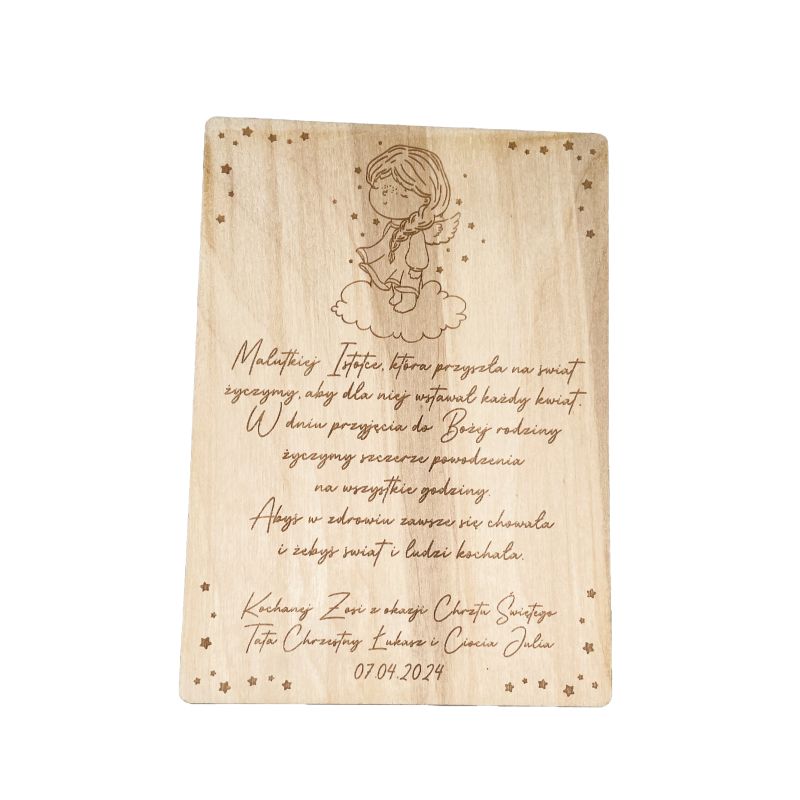 Malutkiej Istotce, która przyszła na świat
życzymy, aby dla niej wstawał każdy kwiat.
W dniu przyjęcia do Bożej rodziny
życzymy szczerze powodzenia
na wszystkie godziny.
Abyś w zdrowiu zawsze się chowała
i żebyś świat i ludzi kochała.
Kochanej Zosi z okazji Chrztu Świętego
Tata Chrzestny Łukasz i Ciocia Julia
07.04.2024